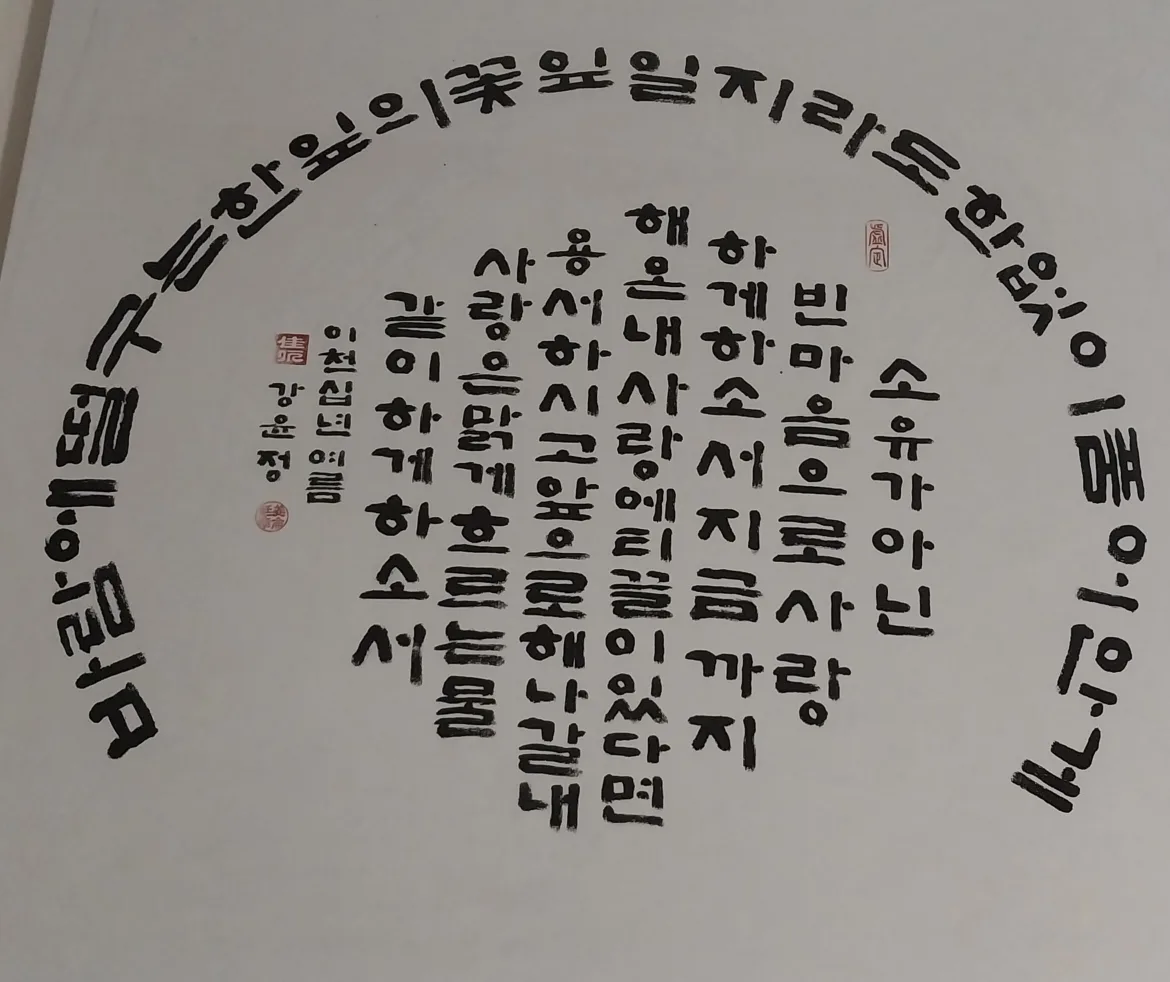 바람에떨구는한잎의꽃잎일지라도한없이품어안게
소유가아닌
빈마음으로사랑
하게하소서지금까지
해온내사랑에티끌이있다면
용서하시고앞으로해나갈내
사랑은맑게흐르는물
같이하게하소서
이천십년여름
강윤정